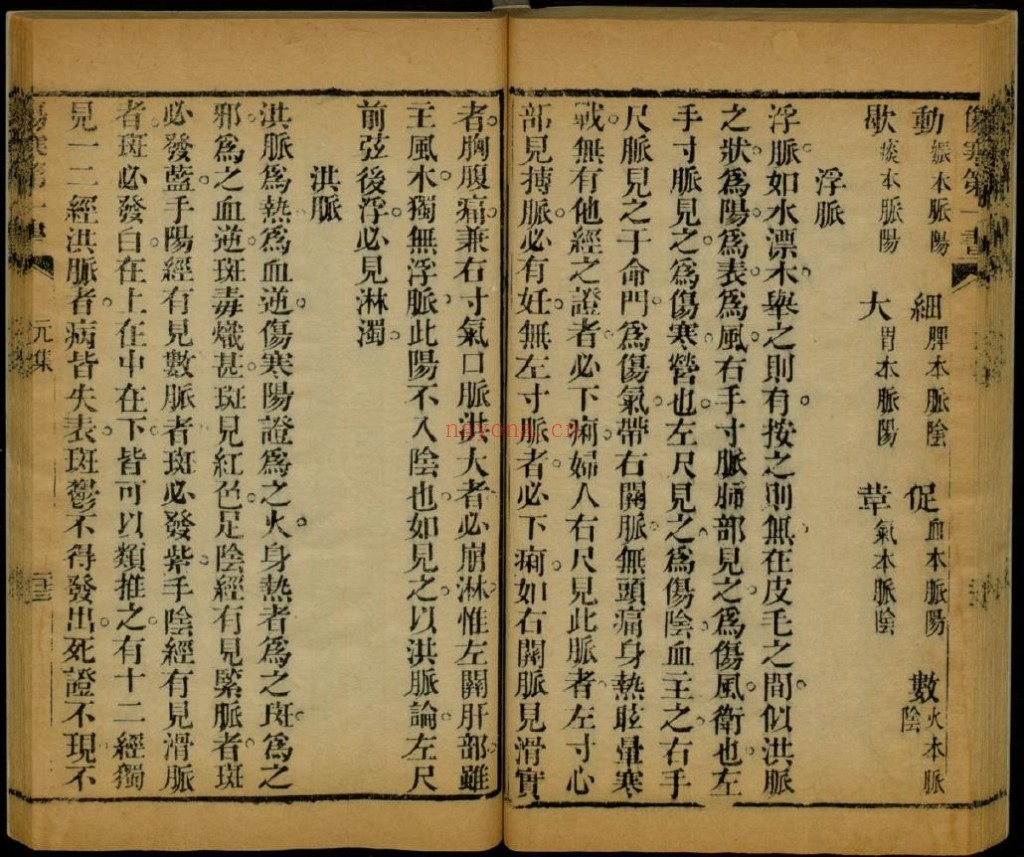 傷寒第一書
動 振本脈陽 細 脾本脈陰 促 血本脈陽 數 火本脈陰
歇 痰本脈陽 大 胃本脈陽 革 氣本脈陰
浮脈
浮脈如水漂木舉之則有按之則無在皮毛之間似洪脈
之狀為陽為表為風右手寸脈肺部見之為傷風衛也左
手寸脈見之為傷寒營也左尺見之為傷陰血主之右手
尺脈見之于命門為傷氣帶右關脈無頭痛身熱眩暈寒
戰無有他經之證者必下痢婦人右尺見此脈者左寸心
部見搏脈必有妊無左寸脈者必下痢如右關脈見滑實
者胸腹痛兼右寸氣口脈洪大者必崩淋惟左關肝部雖
主風木獨無浮脈此陽不入陰也如見之以洪脈論左尺
前弦後浮必見淋濁
洪脈
洪脈為熱為血逆傷寒陽證為之火身熱者為之斑為之
邪為之血逆斑毒熾甚斑見紅色足陰經有見緊脈者斑
必發藍手陽經有見數脈者斑必發紫手陰經有見滑脈
者斑必發白在上在中在下皆可以類推之有十二經獨
見一二經洪脈者病皆失表斑鬱不得發出死證不現不
元集
nayona.cn